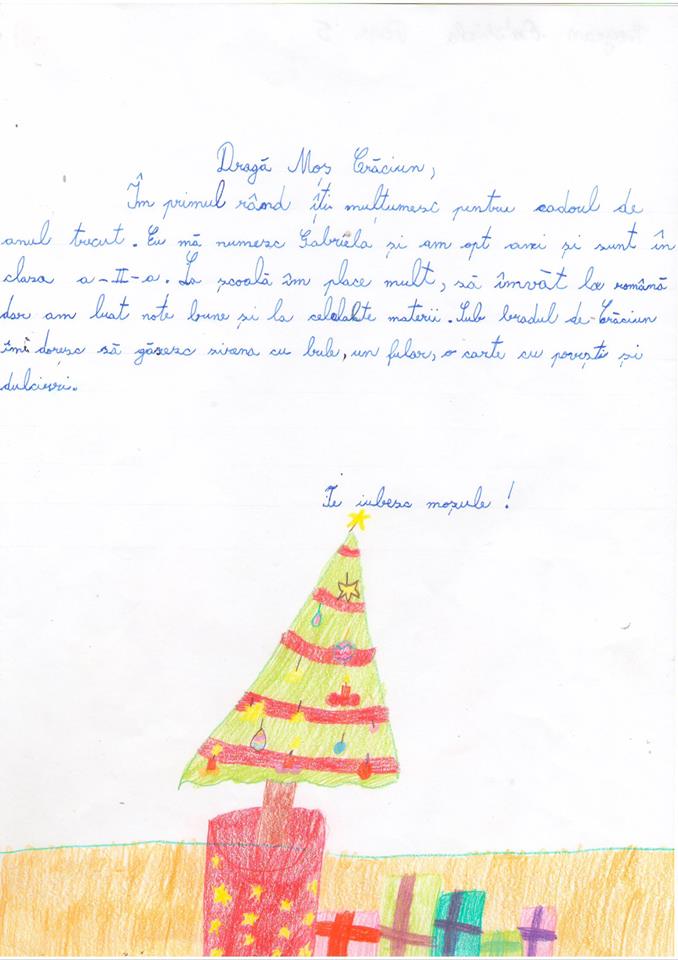 Dragă Moș Crăciun,
Îm primul rând îți mulțumesc pentru cadoul de
anul trecut. Eu mă numesc Gabriela și am opt ani și sunt în
clasa a-II-a. La școală îm place mult, să învăt la română
dar am luat note bune și la celelalte materii. Sub bradul de Crăciun
îmi doresc să găsesc sirena cu bule, un fular, o carte cu povești și
dulciuri.
Te iubesc moșule!